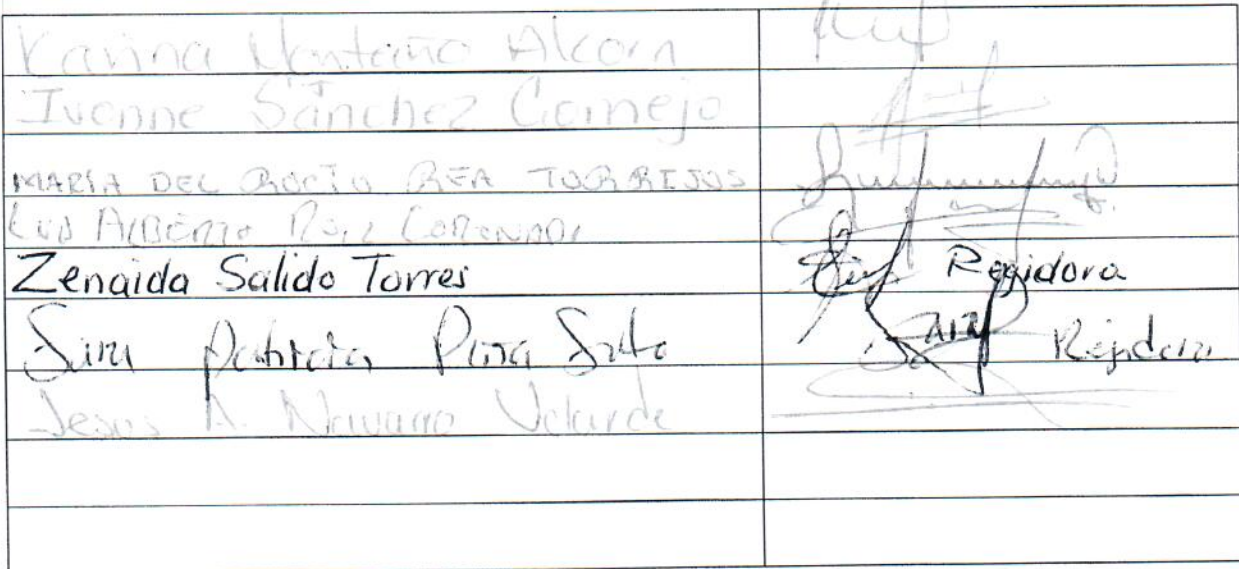 Karina Montaño Alcorn
Ivonne Sánchez Cornejo
MARÍA DEL ROCÍO REA TORRIJOS
LUIS ALBERTO RUIZ CORONADO
Zenaida Salido Torres Regidora
Sara Patricia Piña Soto Regidora
Jesus A. Navarro Velarde